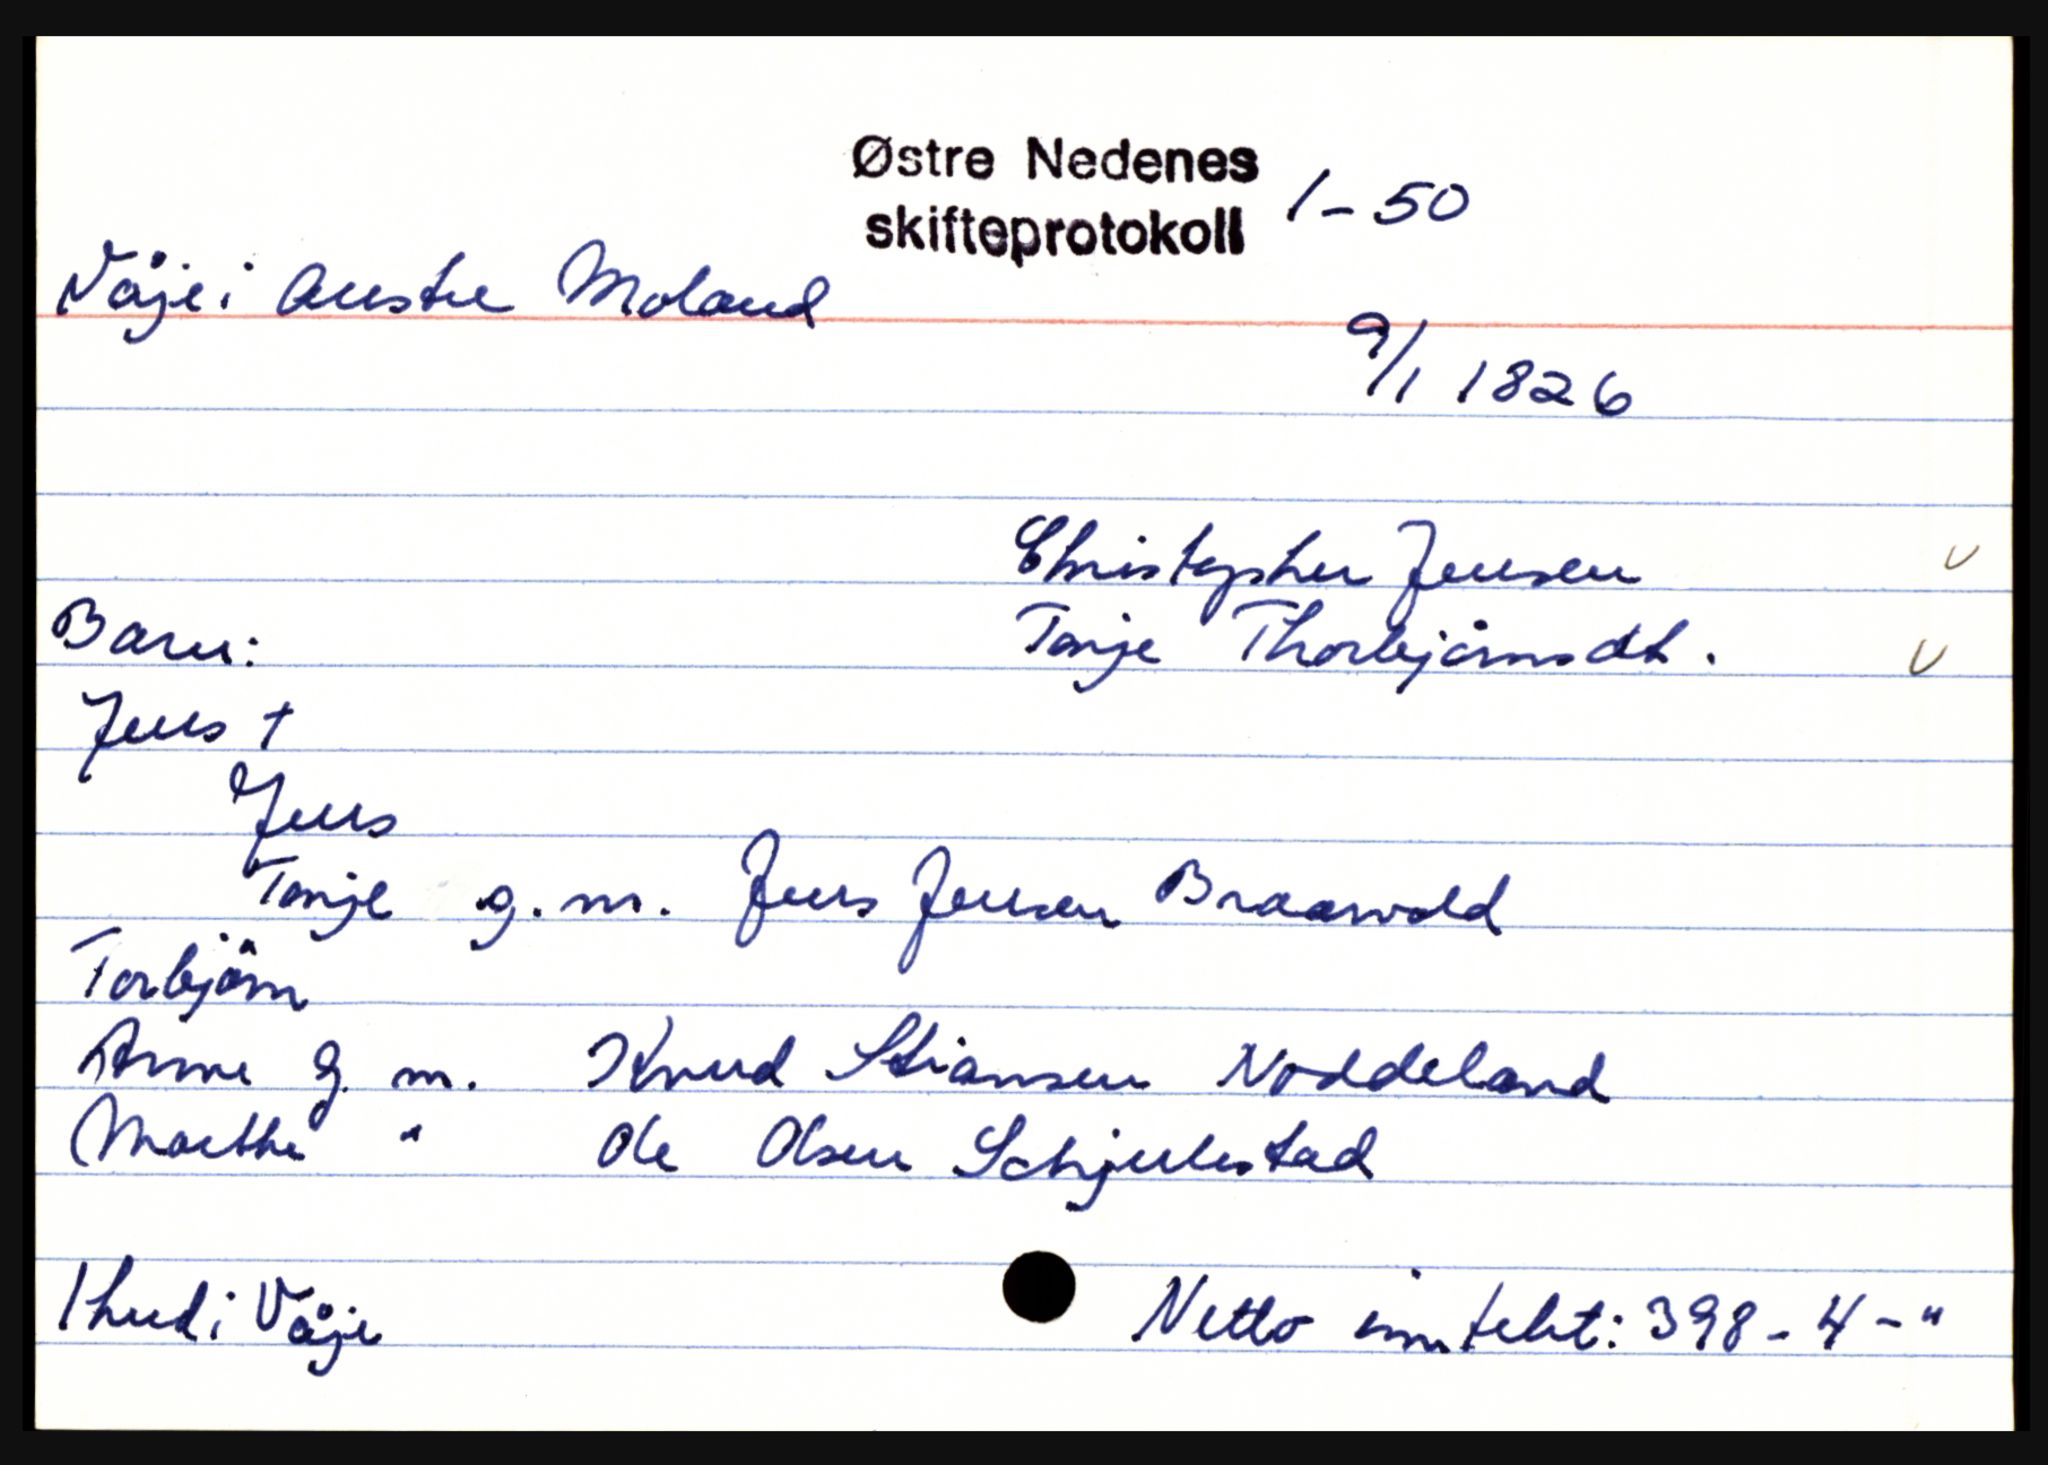 Østre Nedenes
skifteprotokoll 1-50
Våje i Austre Moland
9/1 1826
Christopher Jensen
Barn:
Tonje Thorbjørnsdt.
Jens †
Jens
Tonje g. m. Jens Jensen Braavold
Torbjørn
Anne g. m. Knud Stiansen Noddeland
Marthe " Ole Olsen Schjulestad
1 hud i Våje
Netto inntekt: 398 - 4 - "